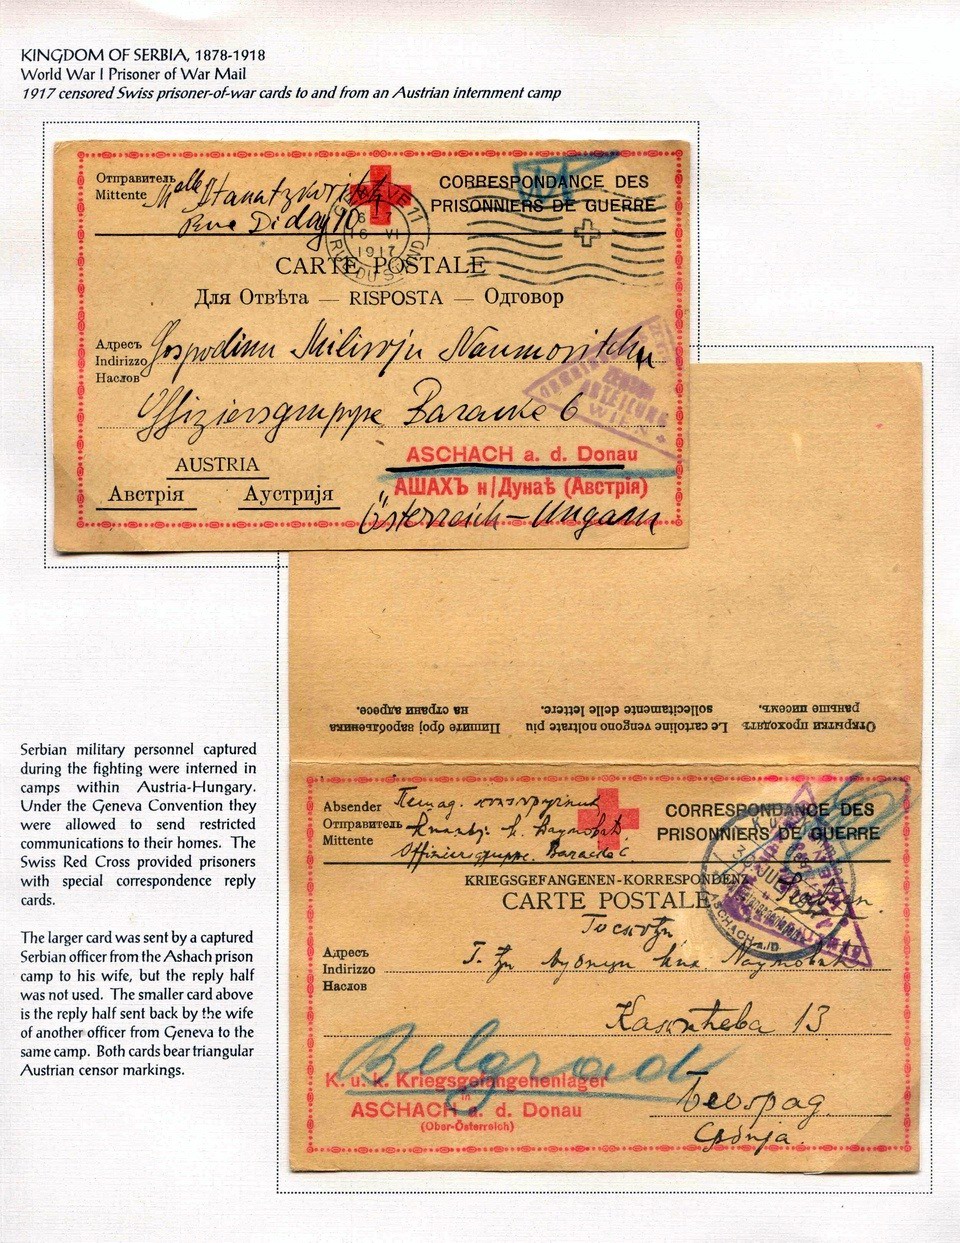 KINGDOM OF SERBIA, 1878-1918
World War I Prisoner of War Mail
1917 censored Swiss prisoner-of-war cards to and from an Austrian internment camp
Отправитель
Mittente
Mlle
Rue Diday 10
CORRESPONDANCE DES
PRISONNIERS DE GUERRE
1917
CARTE POSTALE
Для Отвѣта — RISPOSTA — Одговор
Адресъ
Indirizzo
Наслов
Gospodinu Milivoju Naumovitchu
Offiziersgruppe Baracke 6
ABTEILUNG
WIEN
ASCHACH a. d. Donau
AUSTRIA
Австрія Аустрија
АШАХЪ н/Дунаѣ (Австрія)
Österreich-Ungarn
Пишите број заробљеника
на страни адресе.
Le cartoline vengono inoltrate più
sollecitamente delle lettere.
Открытки проходятъ
раньше писемъ.
Serbian military personnel captured
during the fighting were interned in
camps within Austria-Hungary.
Under the Geneva Convention they
were allowed to send restricted
communications to their homes. The
Swiss Red Cross provided prisoners
with special correspondence reply
cards.
The larger card was sent by a captured
Serbian officer from the Ashach prison
camp to his wife, but the reply half
was not used. The smaller card above
is the reply half sent back by the wife
of another officer from Geneva to the
same camp. Both cards bear triangular
Austrian censor markings.
Absender
Отправитель
Mittente
Offiziersgruppe. Baracke 6
CORRESPONDANCE DES
PRISONNIERS DE GUERRE
KRIEGSGEFANGENEN-KORRESPONDENZ
CARTE POSTALE
ASCHACH a./D.
Адресъ
Indirizzo
Наслов
13
Belgrad
K. u. k. Kriegsgefangenenlager
in
ASCHACH a. d. Donau
(Ober-Österreich)
Београд
Србија.